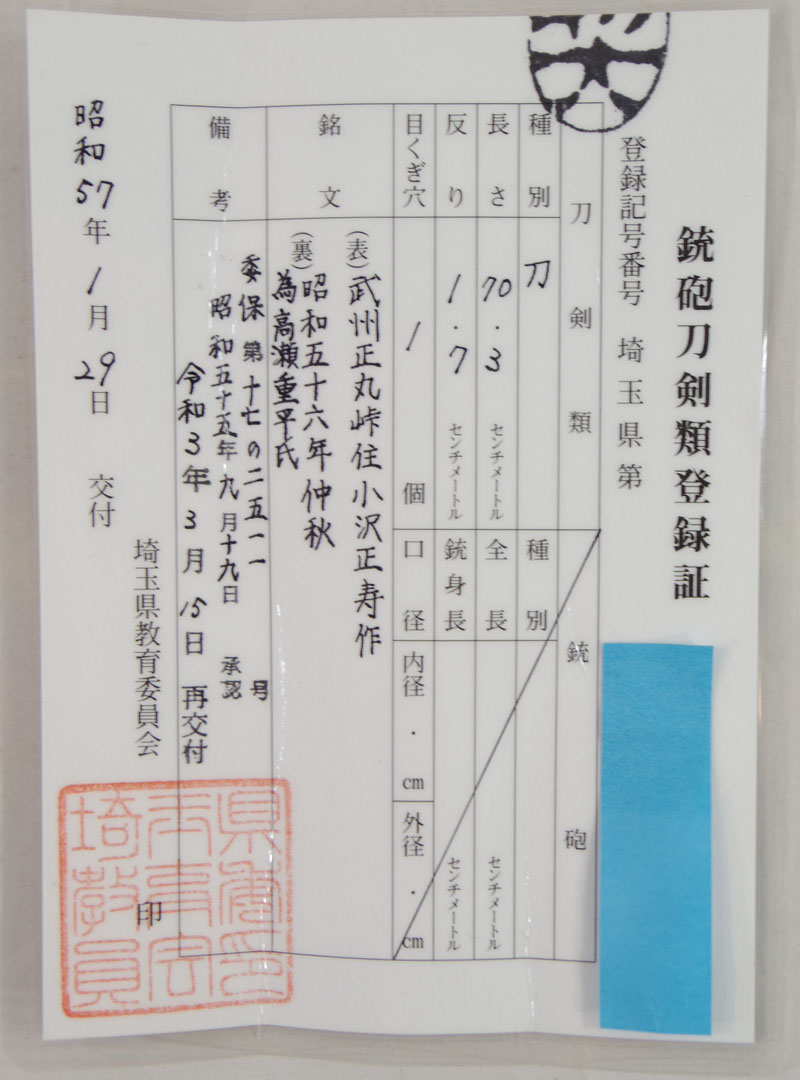 銃砲刀剣類登録証
登録記号番号 埼玉県第
刀剣類
種別 刀
長さ 70.3 センチメートル
反り 1.7 センチメートル
目くぎ穴 1 個
銘文
(表)武州正丸峠住小沢正寿作
(裏)昭和五十六年仲秋
為高瀬重平氏
備考
委保第十七の二五一一号
昭和五十五年九月十九日 承認
令和3年3月15日 再交付
銃砲
種別
全長 センチメートル
銃身長 センチメートル
口径 内径 . cm
外径 . cm
昭和57年1月29日 交付
埼玉県教育委員会
印